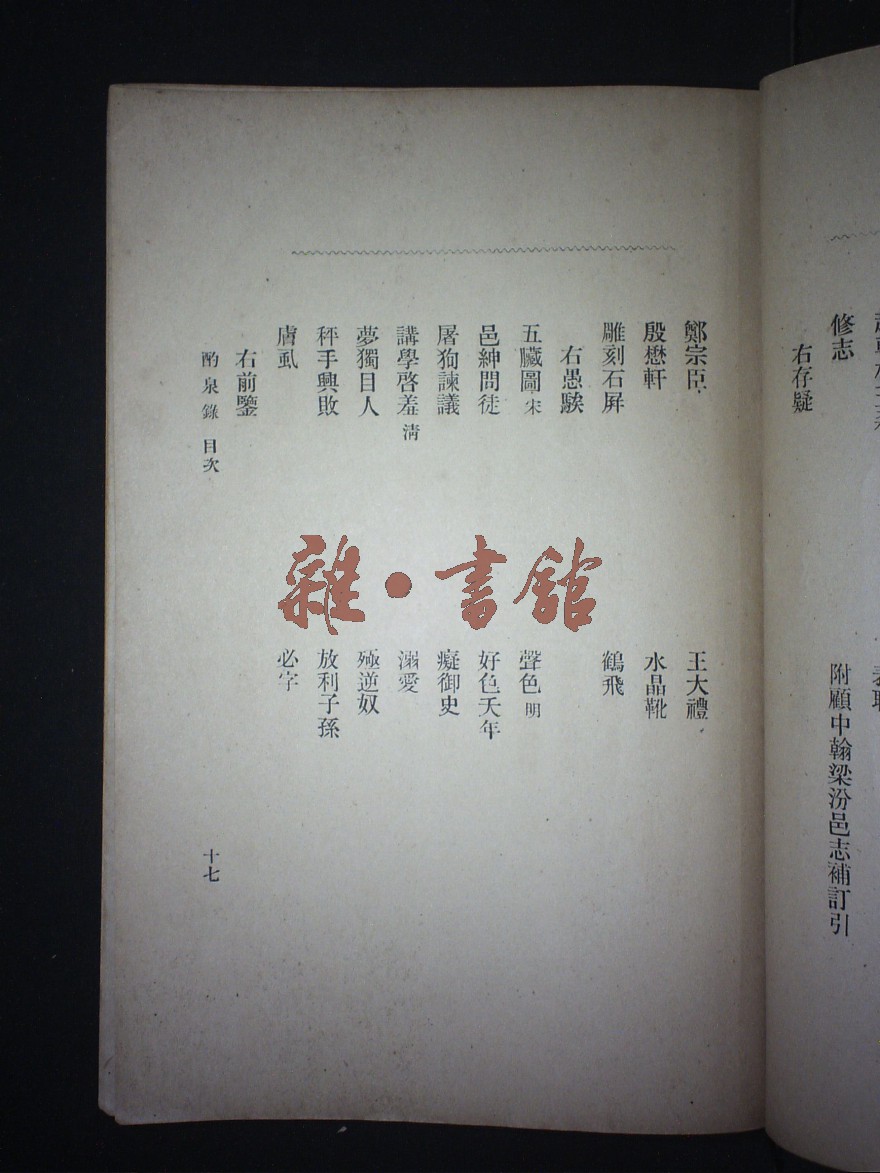 修志
附顧中翰梁汾邑志補訂引
右存疑
鄭宗臣
王大禮
殷懋軒
水晶靴
雕刻石屏
鶴飛
右愚騃
五臟圖 宋
聲色 明
邑紳問徒
好色夭年
屠狗諫議
癡御史
講學啓羞 淸
溺愛
夢獨目人
殛逆奴
秤手興敗
放利子孫
膚虱
必字
右前鑒
酌泉錄 目次
十七
雜·書館